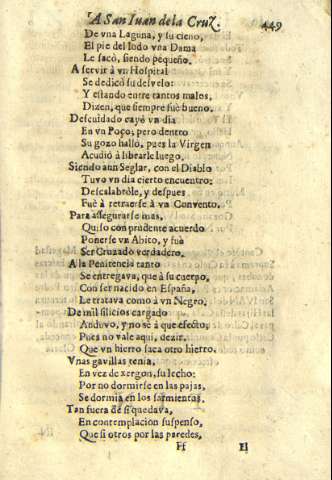 A San Iuan de la Cruz.
449
De vna Laguna, y su cieno,
El pie del lodo vna Dama
Le sacò, siendo pequeño.
A servir à vn Hospital
Se dedicò su desvelo:
Y estando entre tantos malos,
Dizen, que siempre fuè bueno.
Descuidado cayò vn dia
En vn Poço, pero dentro
Su gozo hallò, pues la Virgen
Acudiò à librarle luego.
Siendo aun Seglar, con el Diablo
Tuvo vn dia cierto encuentro;
Descalabròle, y despues
Fuè à retraerse à vn Convento.
Para assegurarse mas,
Quiso con prudente acuerdo
Ponerse vn Abito, y fuè
Ser Cruzado verdadero.
A la Penitencia tanto
Se entregava, que à su cuerpo,
Con ser nacido en España,
Le tratava como à vn Negro.
De mil silicios cargado
Anduvo, y no sè à que efecto,
Pues no vale aqui, dezir,
Que vn hierro saca otro hierro.
Vnas gavillas tenia,
En vez de xergon, su lecho:
Por no dormirse en las pajas,
Se dormia en los sarmientas.
Tan fuera de si quedava,
En contemplacion suspenso,
Que si otros por las paredes,
Ff El